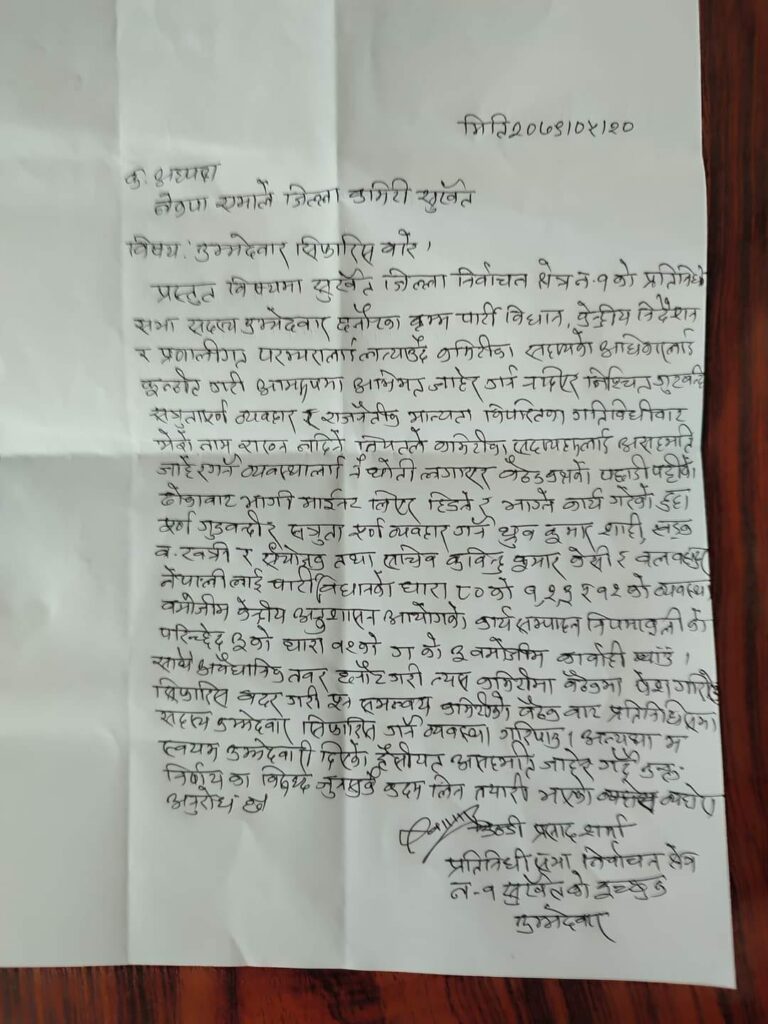 मिति २०७९।०५।२०
क. अध्यक्ष
नेकपा एमाले जिल्ला कमिटी सुर्खेत
विषय: उम्मेदवार सिफारिस बारे।
प्रस्तुत विषयमा सुर्खेत जिल्ला निर्वाचन क्षेत्र न-१ को प्रतिनिधि
सभा सदस्य उम्मेदवार छनौटका क्रममा पार्टी विधान, केन्द्रीय निर्देशन
र प्रणालीगत परम्परालाई कमिटीका सदस्यको अधिकारलाई
कुन्ठीत गरी अभिमत जाहेर गर्न नदिएर निश्चित गुटबन्दि
सत्रुतापूर्ण व्यवहार र राजनैतीक मान्यता विपरितका गतिविधीबाट
मेरो नाम राख्न नदिने नियतले कमिटीका सदस्यहरुलाई असहमति
जाहेर गर्ने व्यवस्थालाई नै चुनौती लगाएर बैठक कक्षको पछाडी पट्टीको
ढोकाबाट भागी माईनट लिएर हिड्ने र भाग्ने कार्य गरेको हुदा
पूर्ण गुटबन्दी र सत्रुता पूर्ण व्यवहार गर्ने ध्रुव कुमार शाही, खडक
ब. खत्री र संयोजक तथा सचिव कुविन्द्र कुमार केसी र बलबहादुर
नेपाली लाई पार्टी विधानको धारा ८० को १,२,३ र १२ को व्यवस्था
बमोजीम केन्द्रीय अनुशासन आयोगको कार्य सम्पादन नियमावली को
परिच्छेद ३ को धारा १२ को ग को ३ बमोजीम कार्वाही
साथै अबैधानिक तवर छनौट गरी त्यस कमिटीमा बैठकमा पेश गरिएको
सिफारिस बदर गरी समन्वय कमिटीको बैठक बाट प्रतिनिधि सभा
सदस्य उम्मेदवार सिफारिस गर्ने व्यवस्था गरिपाउ। अन्यथा म
स्वयम उम्मेदवारी दिएको हैसीयत असहमति जाहेर गर्दै
निर्णय का विरुद्ध जुनसुकै कदम लिन तयारी भएको व्यहोरा
अनुरोध छ।
प्रसाद शर्मा
प्रतिनिधी सभा निर्वाचन क्षेत्र
न-१ सुर्खेतको इच्छुक
उम्मेदवार